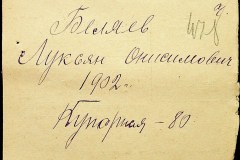 Беляев
Лукьян Онисимович
1902.
Купарная – 80